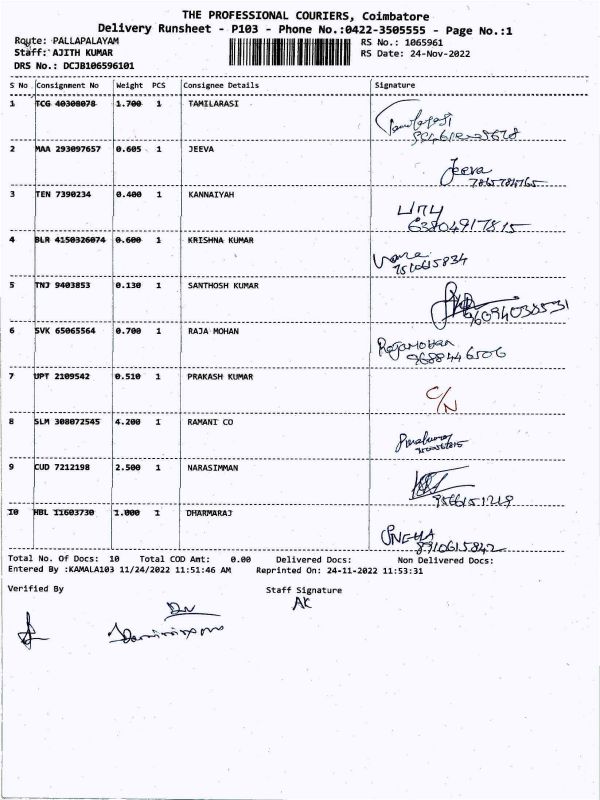 THE PROFESSIONAL COURIERS, Coimbatore
Delivery Runsheet - P103 - Phone No.:0422-3505555 - Page No.:1
Route: PALLAPALAYAM RS No.: 1065961
Staff: AJITH KUMAR RS Date: 24-Nov-2022
DRS No.: DCJB106596101
S No Consignment No Weight PCS Consignee Details Signature
1 TCG 40308078 1.700 1 TAMILARASI
2 MAA 293097657 0.605 1 JEEVA Jeeva
3 TEN 7390234 0.400 1 KANNAIYAH
63804917815
4 BLR 4150326074 0.600 1 KRISHNA KUMAR
7510615834
5 TNJ 9403853 0.130 1 SANTHOSH KUMAR
96094038531
6 SVK 65065564 0.700 1 RAJA MOHAN Rajamohan
9688446506
7 UPT 2109542 0.510 1 PRAKASH KUMAR C/N
8 SLM 308072545 4.200 1 RAMANI CO
9 CUD 7212198 2.500 1 NARASIMMAN
9566151219
10 HBL 11603730 1.000 1 DHARMARAJ SNEHA
8910615842
Total No. Of Docs: 10 Total COD Amt: 0.00 Delivered Docs: Non Delivered Docs:
Entered By :KAMALA103 11/24/2022 11:51:46 AM Reprinted On: 24-11-2022 11:53:31
Verified By Staff Signature
AK